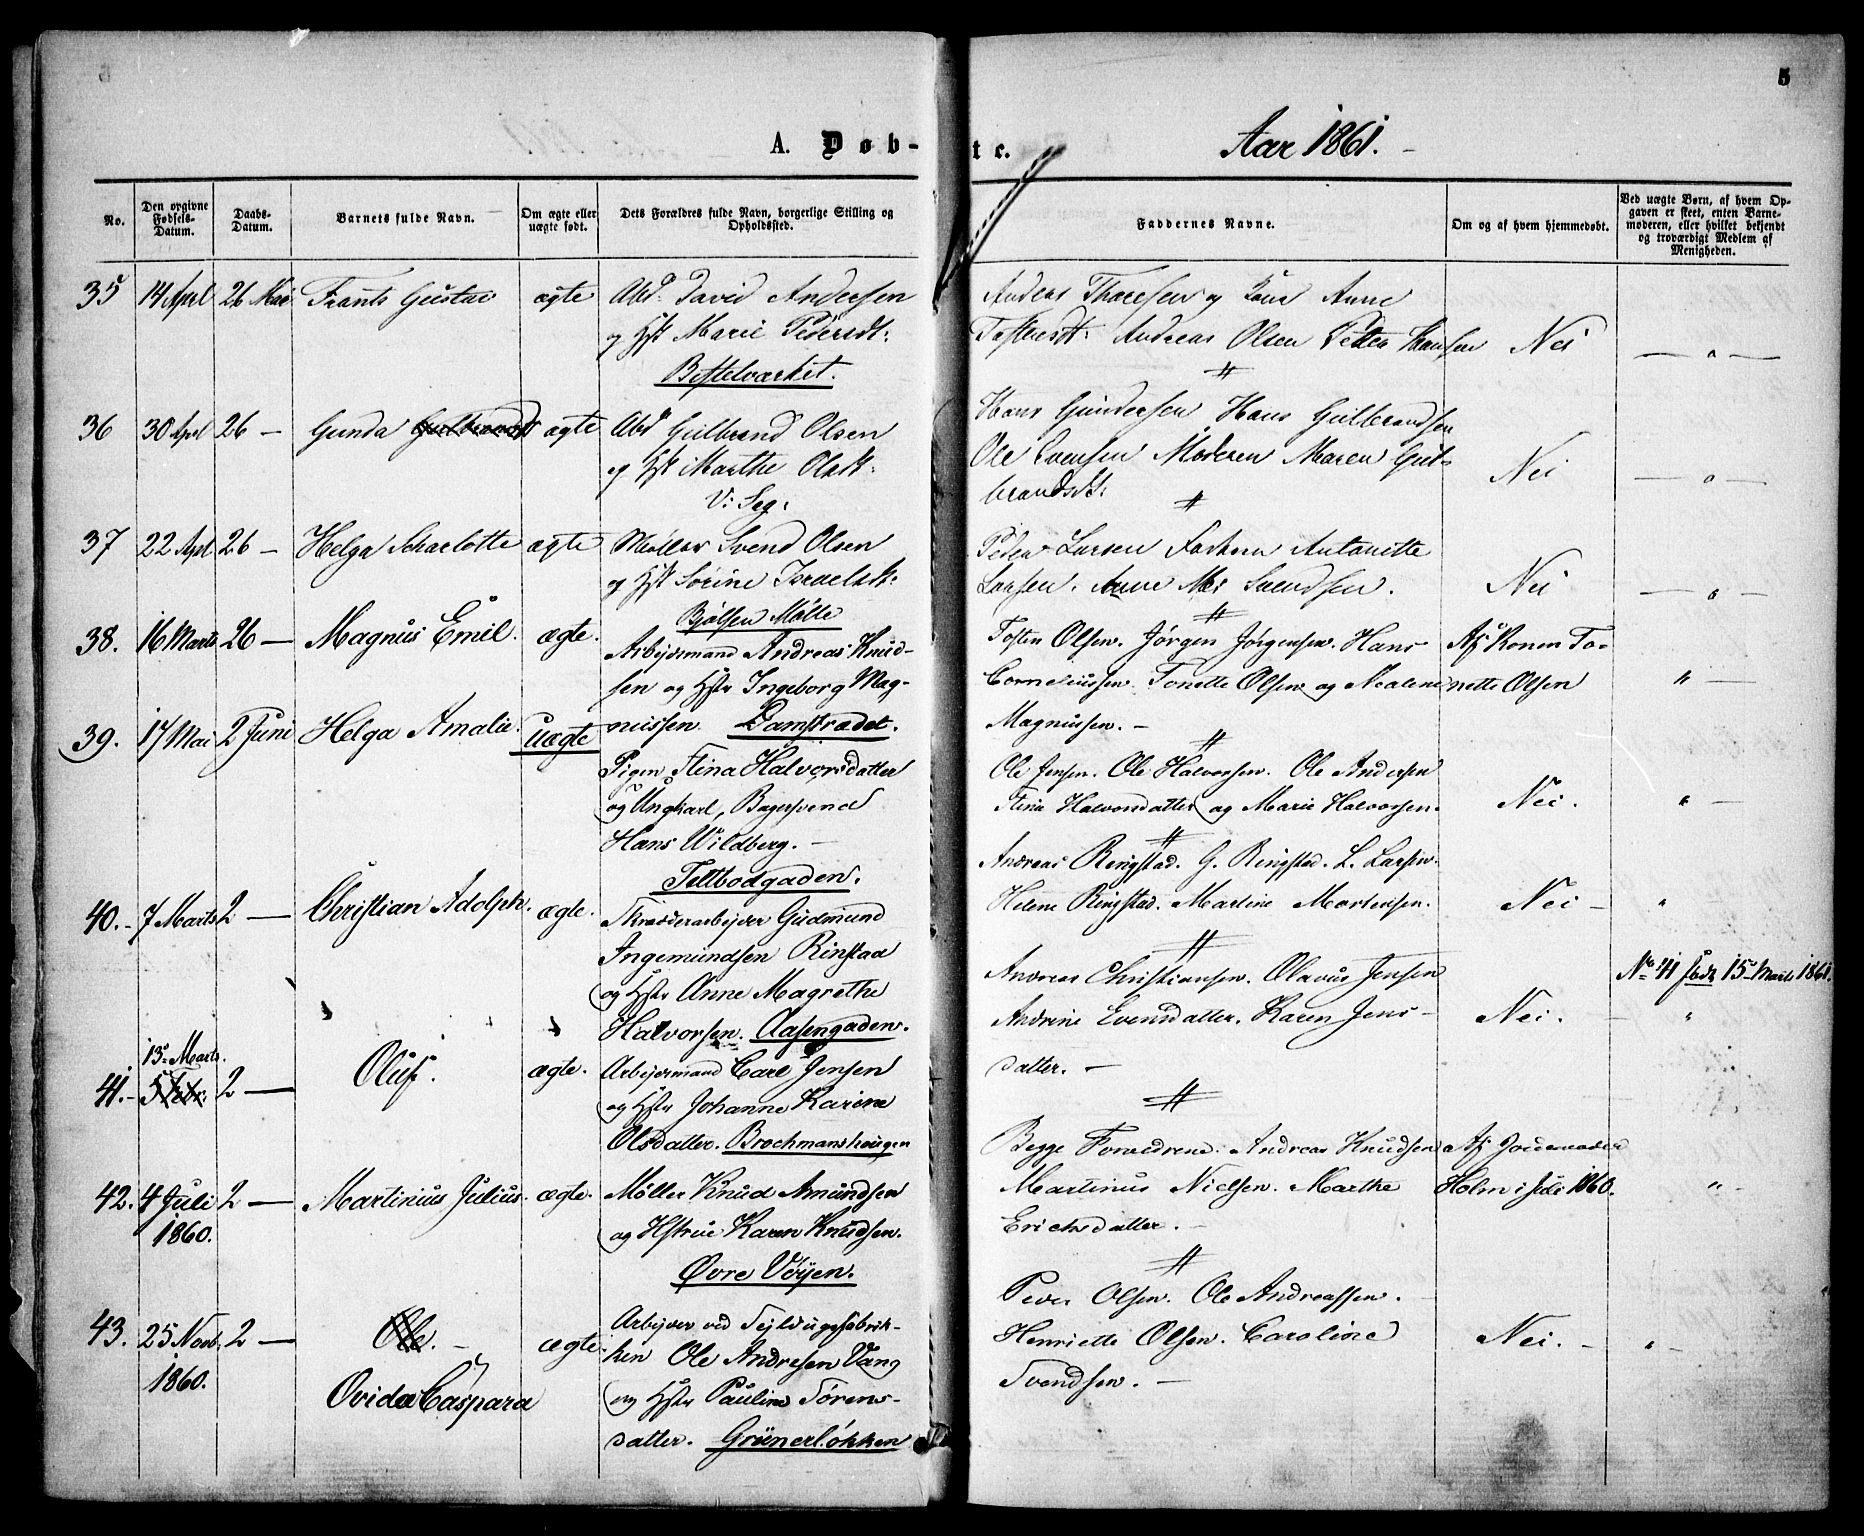 5
A. Døb-
te.
Aar 1861.
No.
Den opgivne Fødsels-Datum.
Daabs-Datum.
Barnets fulde Navn.
Om ægte eller uægte født.
Dets Forældres fulde Navn, borgerlige Stilling og Opholdssted.
Faddernes Navne.
Om og af hvem hjemmedøbt.
Ved uægte Børn, af hvem Opgaven er skeet, enten Barnemoderen, eller hvilket bekjendt og troværdigt Medlem af Menigheden.
35 14 April 26 Mai Frants Gustav ægte Abd. David Andersen
og Hst Marie Pedersdt:
Bestelværket.
Anders Thoresen og Kone Anne
Andreas Olsen Petter Hansen Nei — " —
36 30 April 26 — Gunda Gulbrandsd ægte Abd Gulbrand Olsen
og Hst Marthe Olsk:
V: Seg:
Hans Gundersen Hans Gulbrandsen
Ole Evensen Moderen Maren Gul-
brandsdt: Nei — " —
37 22 Apl 26 — Helga Scharlotte ægte Møller Svend Olsen
og Hst Sørine Israelsk:
Bjølsen Mølle
Peder Larsen Antonette
Larsen. Anne Svendsen. Nei — " —
38. 16 Marts 26 — Magnus Emil. ægte. Arbejdsmand Andreas Knud-
sen og Hstr Ingeborg Mag-
nussen Damstrædet.
Tosten Olsen. Jørgen Jørgensen. Hans
Corneliussen. Tonette Olsen og Nealene
Magnussen. —
Af Konen To-
nette Olsen " —
39. 17 Mai 2 Juni Helga Amalie. uægte Pigen Stina Halvorsdatter
og Ungkarl, Bagersvend
Hans Wildberg. —
Teltbodgaden.
Ole Jensen. Ole Halvorsen. Ole Andersen
Stine Halvorsdatter og Marie Halvorsen. Nei. " —
40. 7 Marts 2 — Christian Adolph. ægte. Traadderarbejder Gudmund
Angemundsen Rinstad
og Hstr Anne Magrethe
Halvorsen. Aasengaden.
Andreas Ringstad. G. Ringstad. L. Larsen.
Helene Ringstad. Martine Mortensen. Nei — "
41. 5 Febr. 15. Marts. 2 — Oluf. ægte. Arbejdsmand Carl Jensen
og Hstr Johanne Karine
Olsdatter. Brochmanshougen
Andreas Christiansen. Olavus Jensen
Andrine Evensdatter. Karen Jens-
datter. — Nei. — "
No 41 født 15. Marts 1861.
42. 4 Juli 1860. 2 — Martinius Julius. ægte. Møller Knud Amundsen
og Hstrue Karen Knudsen.
Øvre Vøyen.
Begge Forældrene. Andreas Knudsen
Martinus Nielsen. Marthe
Erichsdatter. —
Af Jordemoder
Holm i Juli 1860. " —
43. 25 Novb. 1860. 2 — Ole. —
Ovida Caspara
ægte. Arbejder ved Sejldugsfabrik-
ken Ole Andresen Vang
og Hstr Pauline Sørens-
datter. Grünerløkken
Peder Olsen. Ole Andreassen.
Henriette Olsen. Caroline
Svendsen. — Nei. — " —